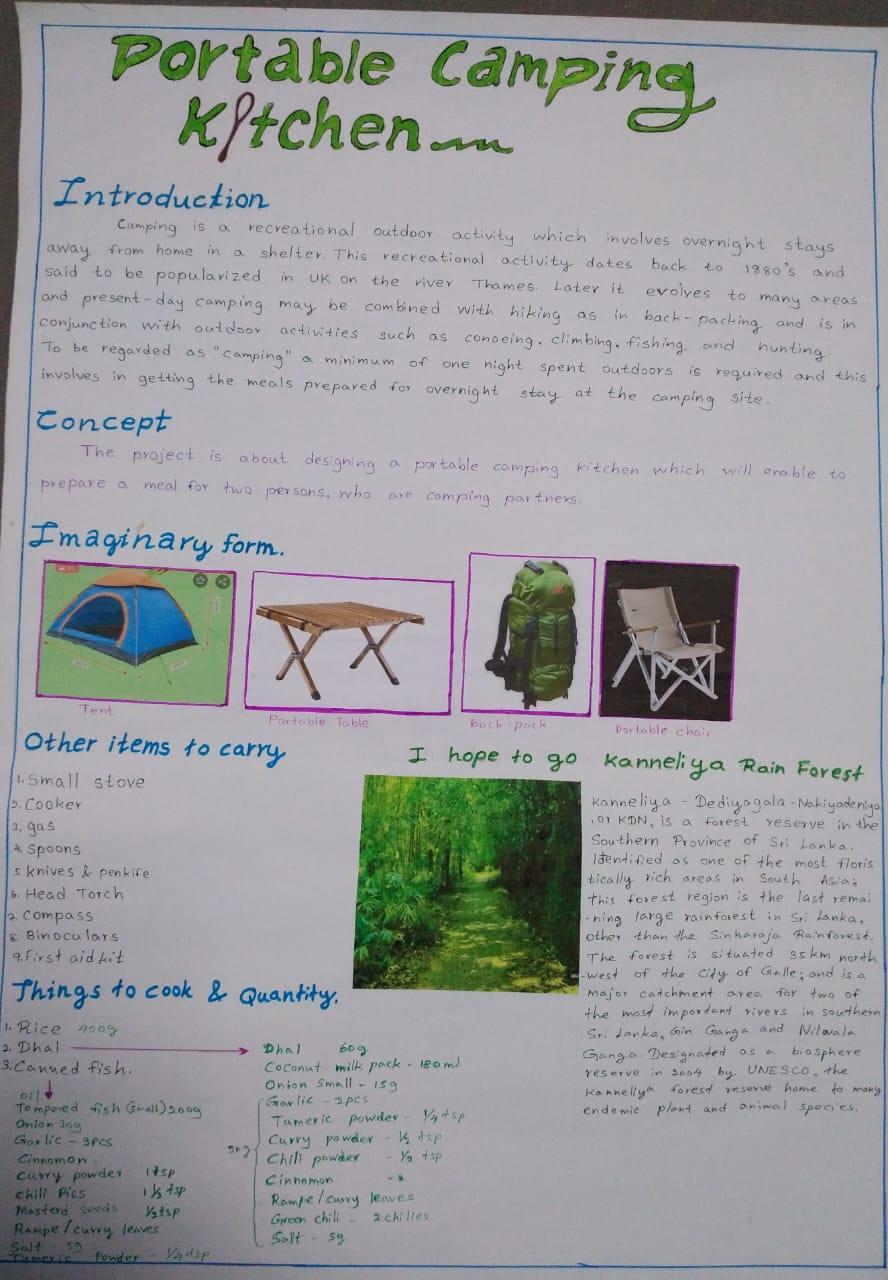 Portable Camping
Kitchen
Introduction
Camping is a recreational outdoor activity which involves overnight stays
away from home in a shelter. This recreational activity dates back to 1880's and
said to be popularized in UK on the river Thames. Later it evolves to many areas
and present-day camping may be combined with hiking as in back-packing and is in
conjunction with outdoor activities such as conoeing, climbing, fishing and hunting.
To be regarded as "camping" a minimum of one night spent outdoors is required and this
involves in getting the meals prepared for overnight stay at the camping site.
Concept
The project is about designing a portable camping kitchen which will enable to
prepare a meal for two persons, who are camping partners.
Imaginary form.
Tent
Portable Table
back-pack
Portable chair
Other items to carry
1. Small stove
2. Cooker
3. gas
4. Spoons
5 knives & penkife
6. Head Torch
7. Compass
8. Binoculars
9. First aid kit
I hope to go Kanneliya Rain Forest
Kanneliya - Dediyagala - Nakiyadeniya
, or KDN, is a forest reserve in the
Southern Province of Sri Lanka.
Identified as one of the most floris
tically rich areas in South Asia;
this forest region is the last remai
-ning large rainforest in Sri Lanka,
other than the Sinharaja Rainforest.
The forest is situated 35km north
-west of the City of Galle; and is a
major catchment area for two of
the most important rivers in southern
Sri Lanka, Gin Ganga and Nilwala
Ganga. Designated as a biosphere
reserve in 2004 by UNESCO, the
Kanneliya forest reserve home to many
endemic plant and animal species.
Things to cook & Quantity.
1. Rice 400g
2. Dhal
3. Canned fish.
oil
Tempered fish (small) 200g
Onion 30g
Garlic - 3pcs
Cinnomon
Curry powder 1tsp
chili Pics 1 1/2 tsp
Masterd seeds 1/2tsp
Rampe / curry leaves
Salt - 5g
Tumeric Powder - 1/4 tsp
Dhal 60g
Coconut milk pack - 180ml
Onion Small - 15g
Garlic - 2pcs
Tumeric powder - 1/4 tsp
20g
Curry powder - 1/2 tsp
Chili powder - 1/2 tsp
Cinnomon
Rampe/curry leaves
Green chili - 2 chilies
Salt - 5g